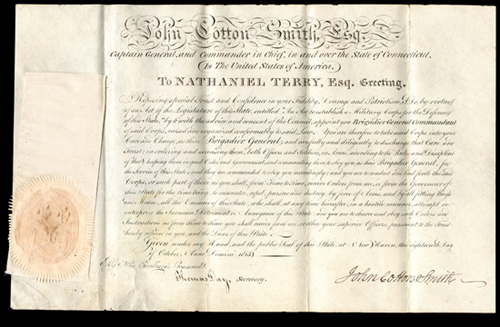 John Cotton Smith, Esq.
Captain General, and Commander in Chief, in and over the State of Connecticut,
(In The United States of America.)
To NATHANIEL TERRY, Esq. Greeting.
Reposing special Trust and Confidence in your Fidelity, Courage and Patriotism, I Do, by virtue
of an Act of the Legislature of this State, entitled "An Act to establish a Military Corps for the Defence
of the State," by & with the advice and consent of the Council, appoint you Brigadier General Commandant
of said Corps, raised and organized conformably to said Law. You are therefore to take said Corps into your
Care and Charge, as their Brigadier General; and carefully and diligently to discharge that Care and
Trust, in ordering and exercising them, both Officers and Soldiers, in Arms, according to the Rules and Discipline
of War, keeping them in good Order and Government, and commanding them to obey you as their Brigadier General, for
the Service of this State, and they are commanded to obey you accordingly; and you are to conduct and lead forth the said
Corps, or such part of them as you shall, from Time to time, receive Orders from me, or from the Governor of
this State for the time being, to encounter, repel, pursue and destroy, by force of Arms, and by all fitting Ways
and Means, all the Enemies of this State, who shall, at any time hereafter, in a hostile manner, attempt or
enterprize the Invasion, Detriment or Annoyance of this State; and you are to observe and obey such Orders and
Instructions as from time to time you shall receive from me, or other your superior Officers, pursuant to the Trust
hereby reposed in you, and the Laws of this State.
Given under my Hand, and the public Seal of this State, at New Haven, the eighteenth Day
of October, Anno Domini 1813
By His Excellency's Command.
Thomas Day, Secretary.
John Cotton Smith